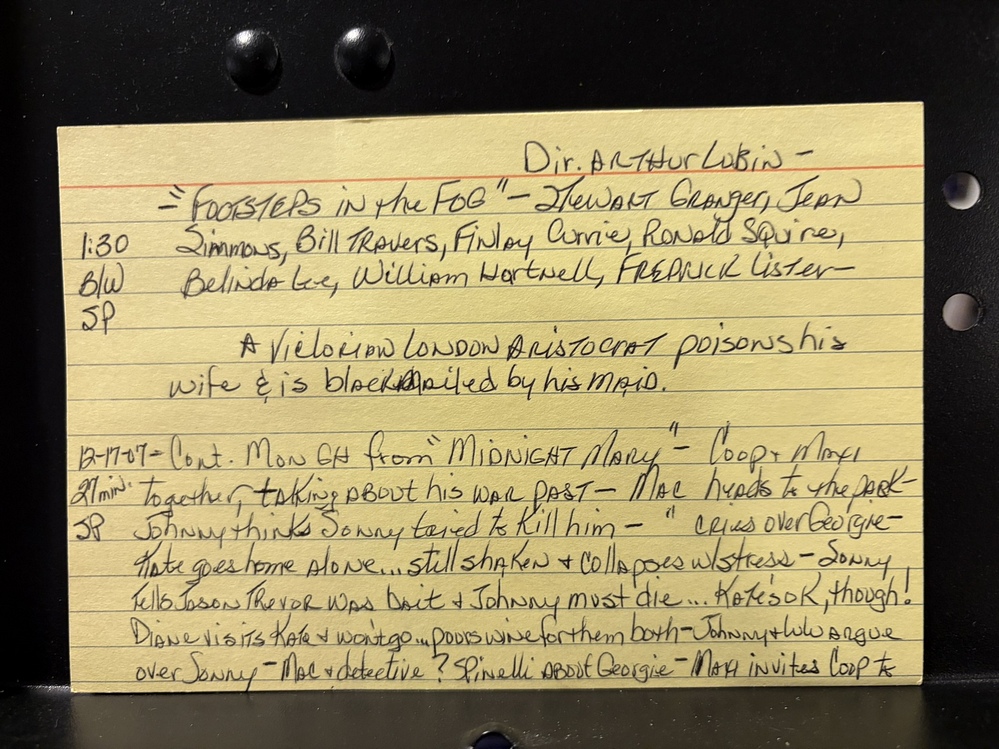 Dir. ARTHUR LUBIN -
- "FOOTSTEPS in the FOG" - Stewart Granger, Jean
1:30 Simmons, Bill TRAVERS, Finlay Currie, Ronald Squire,
B/W Belinda Lee, William Hartnell, FREDRICK Lister -
SP
A Victorian LONDON ARISTOCRAT poisons his
wife & is blackmailed by his MAID.
12-17-07 - Cont. MON GH from "MIDNIGHT MARY" - Coop + Maxi
27 min. together, talking ABOUT his WAR PAST - Mac heads to the PARK -
SP Johnny thinks Sonny tried to kill him - " cries over Georgie -
Kate goes home alone... still shaken & collapses w/stress - Sonny
tells Jason Trevor was bait & Johnny must die... Kate's OK, though!
Diane visits Kate & won't go... pours wine for them both - Johnny & Lulu argue
over Sonny - Mac & detective ? Spinelli ABOUT Georgie - Maxi invites Coop to